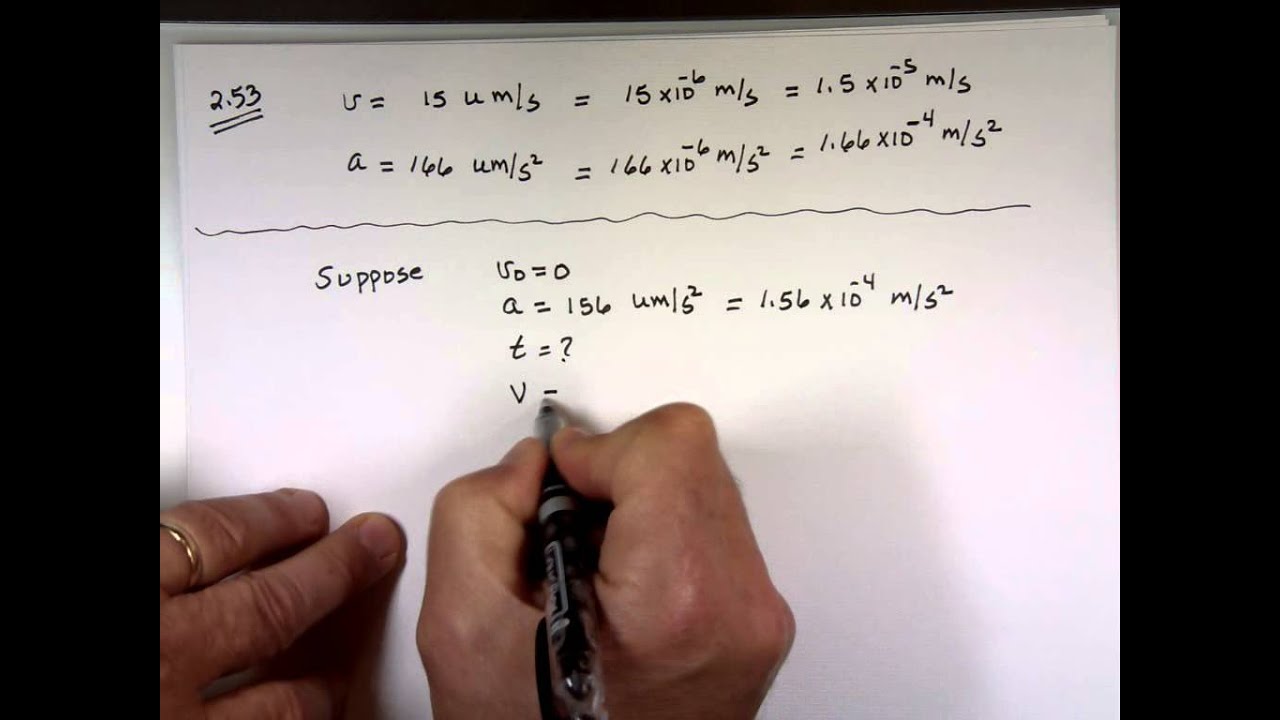 2.53 v = 15 um/s = 15×10⁻⁶ m/s = 1.5×10⁻⁵ m/s
a = 166 um/s² = 166×10⁻⁶ m/s² = 1.66×10⁻⁴ m/s²
Suppose v₀ = 0
a = 156 um/s² = 1.56×10⁻⁴ m/s²
t = ?
v =